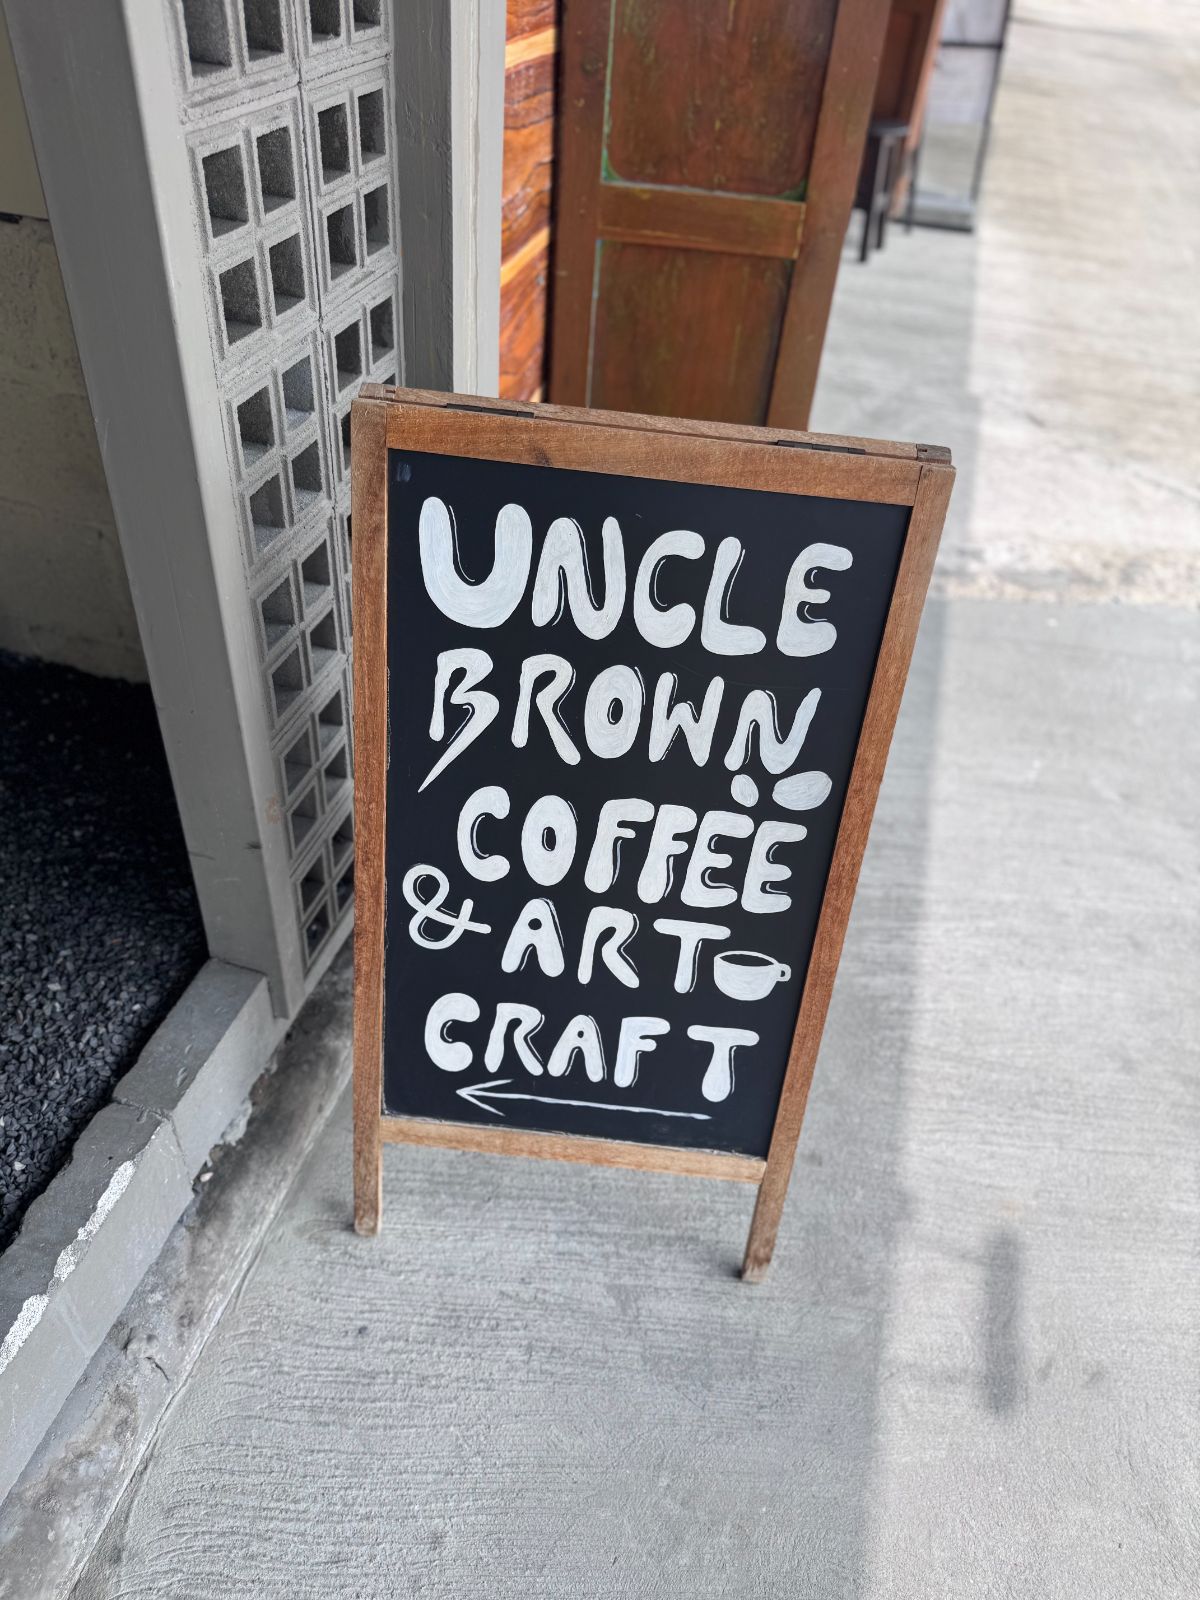 UNCLE
BROWN
COFFEE
& ART
CRAFT